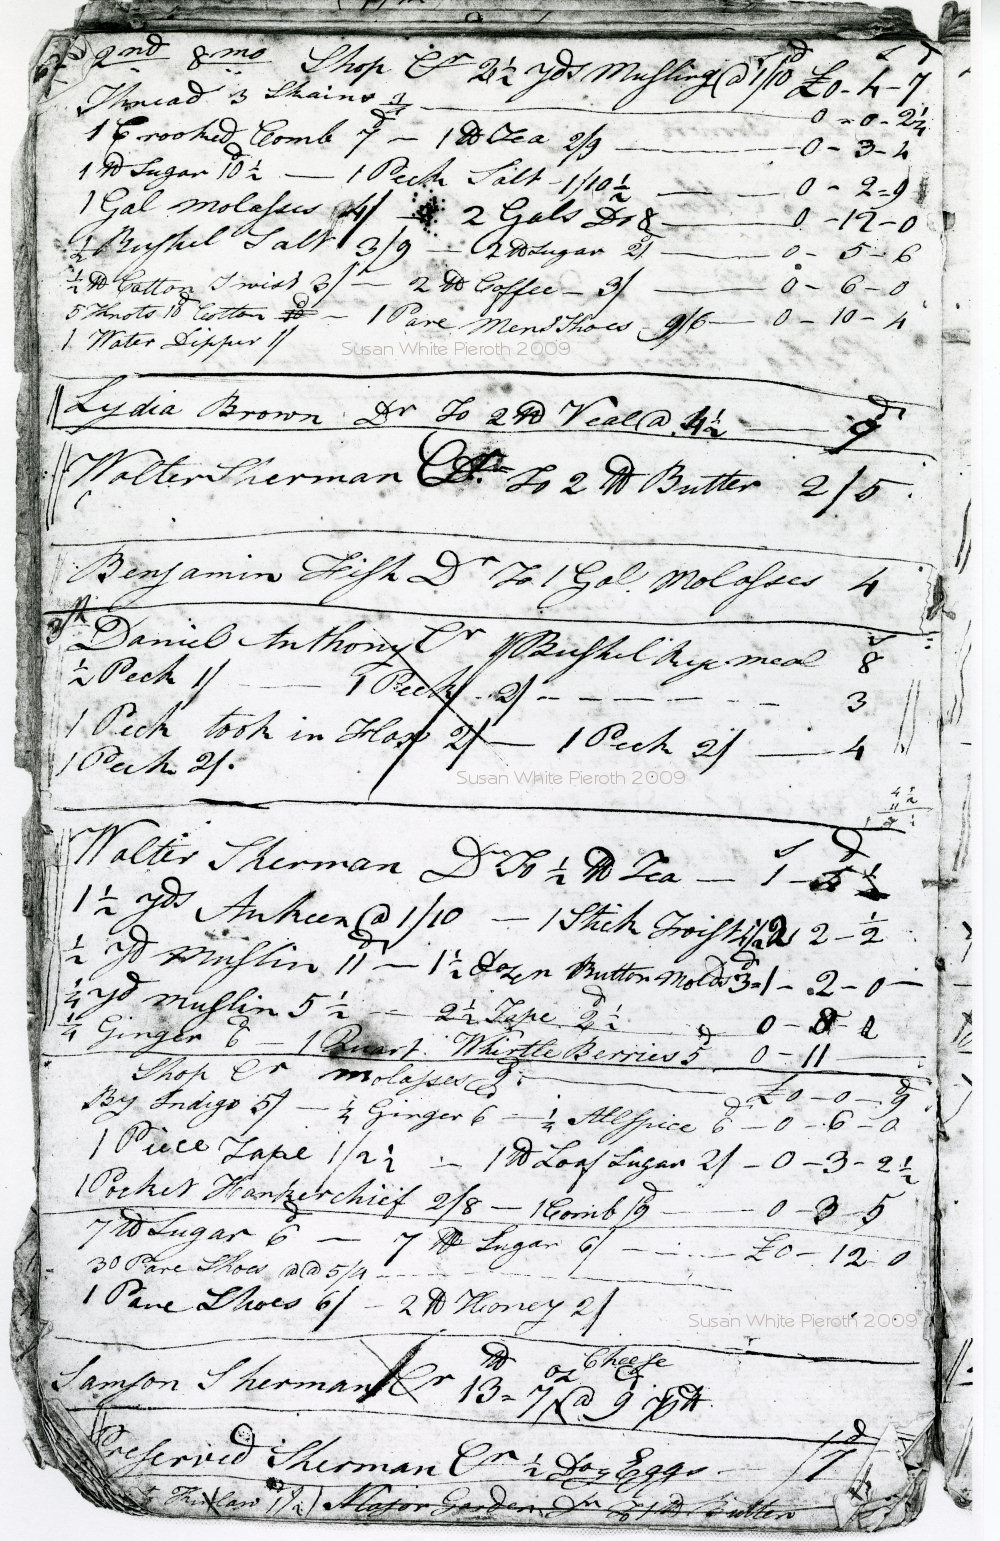 2nd 8mo Shop Cr 2½ yds Musling @ 1/10 £0-4-7
Thread 3 Skains 0-0-2¼
1 Crooked Comb 7d - 1 ℔ Tea 2/9 0-3-4
1 ℔ Sugar 10d½ - 1 Peck Salt 1/10½ 0-2-9
1 Gal molasses 4/ - 2 Gals Do 8 0-12-0
½ Bushel Salt 3/9 - 2 ℔ Sugar 0-5-6
½ ℔ Cotton Twist 3/ - 2 ℔ Coffee - 3/ 0-6-0
5 Knots Cotton - 1 Pare Mens Shoes 9/6 0-10-4
1 Water Dipper 1/
Susan White Pieroth 2009
Lydia Brown Dr To 2 ℔ Veal @ 4½ 9d
Walter Sherman To 2 ℔ Butter 2/5
Benjamin Fish Dr To 1 Gal. Molasses 4
3d Daniel Anthony Cr 1 Bushel Rye meal 8
½ Peck 1/ 1 Peck 2/ 3
1 Peck took in Flax 2/ - 1 Peck 2/ 4
1 Peck 2/.
Susan White Pieroth 2009
Walter Sherman Dr To ½ ℔ Tea - 1-
1½ yds @ 1/10 - 1 Stick Twist 2-½
½ yd Muslin 11d - 1½ Dozen Button Molds 3d 1-2-0
¼ yd muslin 5½ - 2½ Tape 2d½ 0-8-
¼ Ginger 6 - 1 Quart Whirtle Berries 5d 0-11
Shop Cr molasses 9d £0-0-9
By Indigo 5/ - ¼ Ginger 6 - ¼ Allspice 6d - 0-6-0
1 Piece Tape 1/2½ - 1 ℔ Loaf Sugar 2/ - 0-3-2½
1 Pocket Hankerchief 2/8 - 1 Comb /9d 0-3-5
7 ℔ Sugar 6d - 7 ℔ Sugar 6/ £0-12-0
30 Pare Shoes @ 5/
1 Pare Shoes 6/ - 2 ℔ Honey 2/
Susan White Pieroth 2009
Samson Sherman Cr 13 ℔ - 7 oz Cheese @ 9
Preserved Sherman Cr ½ Doz Eggs /7d
Major Garden Dr To 1 ℔ Butter